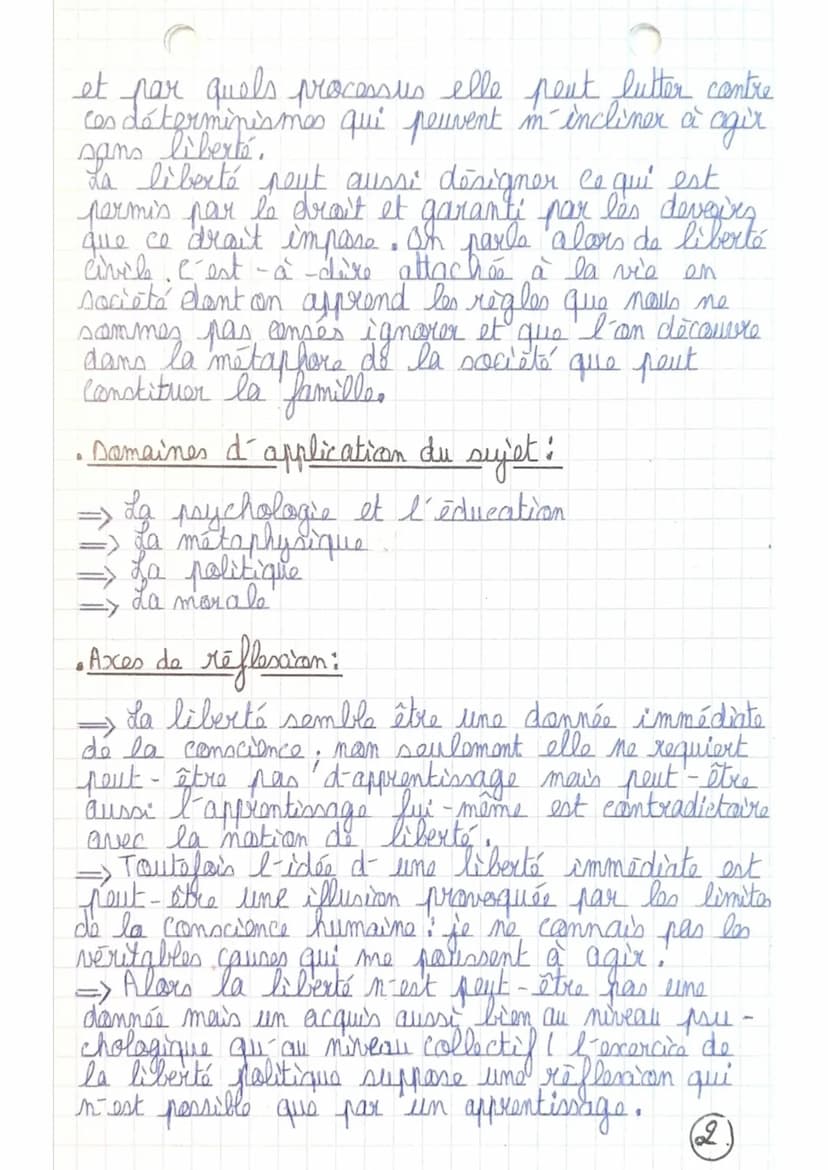 et par quels processus elle peut lutter contre
ces déterminismes qui peuvent m'incliner à agir
sans liberté.
La liberté peut aussi désigner ce qui est
permis par le droit et garanti par les devoirs
que ce droit impose. On parle alors de liberté
civile, c'est-à-dire attachée à la vie en
société dont on apprend les règles que nous ne
sommes pas censés ignorer et que l'on découvre
dans la métaphore de la société que peut
constituer la famille.
. Domaines d'application du sujet :
=> La psychologie et l'éducation
=> La métaphysique
=> La politique
=> La morale
. Axes de réflexion :
=> La liberté semble être une donnée immédiate
de la conscience ; non seulement elle ne requiert
peut-être pas d'apprentissage mais peut-être
aussi l'apprentissage lui-même est contradictoire
avec la notion de liberté.
=> Toutefois l'idée d'une liberté immédiate est
peut-être une illusion provoquée par les limites
de la conscience humaine : je ne connais pas les
véritables causes qui me poussent à agir.
=> Alors la liberté n'est peut-être pas une
donnée mais un acquis aussi bien au niveau psy-
chologique qu'au niveau collectif ( l'exercice de
la liberté politique suppose une réflexion qui
n'est possible que par un apprentissage.
2.